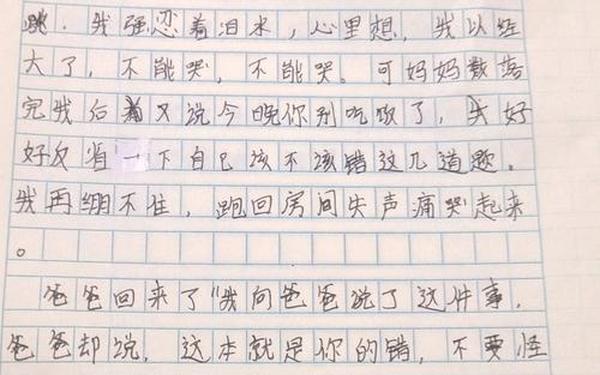 跳. 我强恋着泪水, 心里想, 我以经
大了, 不能哭, 不能哭。可妈妈数落
完我后又说今晚你别吃饭了, 好
好反省一下自己该不该错这几道题。
我再绷不住, 跑回房间失声痛哭起来
。
爸爸回来了 我向爸爸说了这件事.
爸爸却说. 这本就是你的错, 不要怪